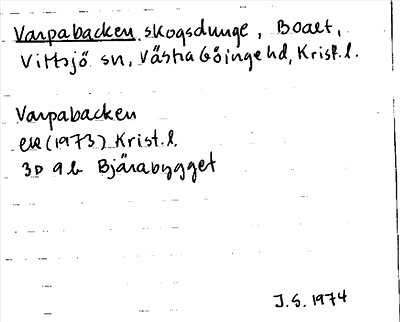 Varpabacken skogsdunge, Boaet,
Vittsjö sn, Västra Göinge hd, Krist. l.
Varpabacken
ek (1973) Krist. l.
3D 9b Bjärabygget
J.S. 1974